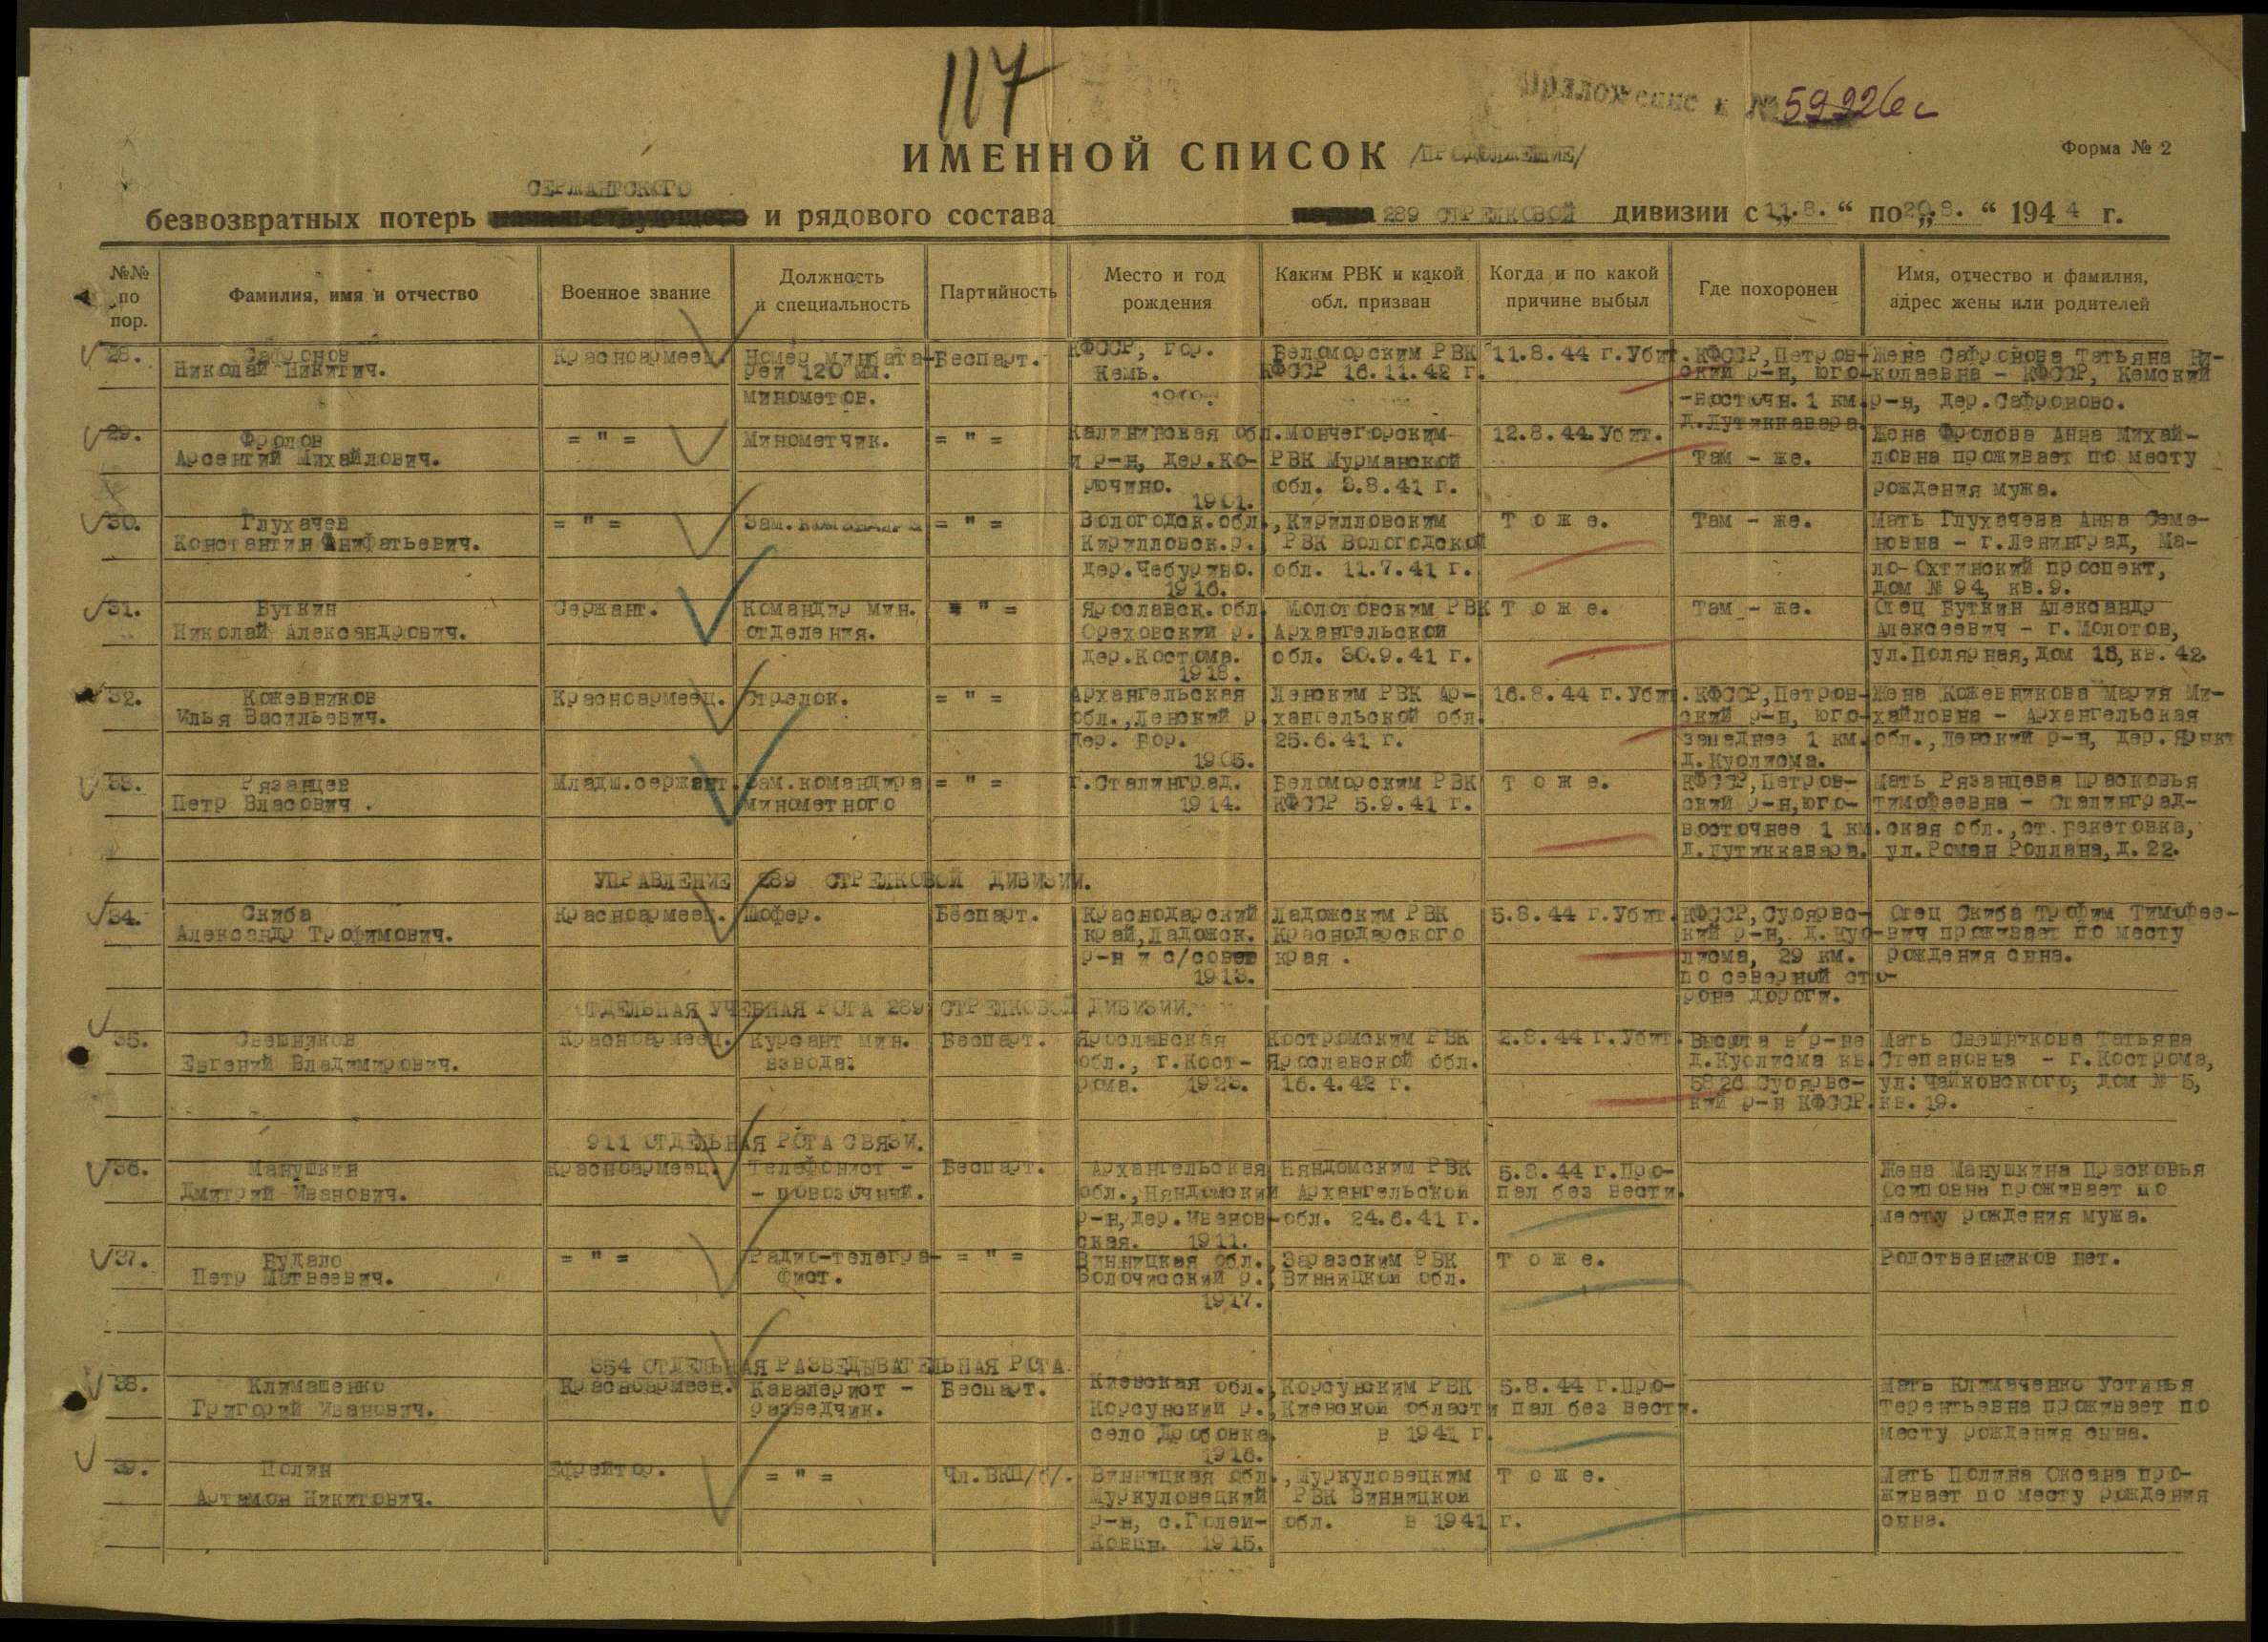 117
Приложение к № 59926с
ИМЕННОЙ СПИСОК /ПРОДОЛЖЕНИЕ/
Форма № 2
СЕРЖАНТСКОГО
безвозвратных потерь начальствующего и рядового состава 289 СТРЕЛКОВОЙ дивизии с „11.8. “ по „20.8. “ 1944 г.
№№ по пор.
Фамилия, имя и отчество
Военное звание
Должность и специальность
Партийность
Место и год рождения
Каким РВК и какой обл. призван
Когда и по какой причине выбыл
Где похоронен
Имя, отчество и фамилия, адрес жены или родителей
28. Сафронов Красноармеец. Номер минбата- Беспарт. КФССР, гор. Беломорским РВК 11.8.44 г.Убит. КФССР,Петров- Жена Сафронова Татьяна Ни-
Николай Никитич. реи 120 мм. Кемь. КФССР 16.11.42 г. ский р-н, юго- колаевна - КФССР, Кемский
минометов. -восточн. 1 км. р-н, дер.Сафроново.
д.Лутиккавара.
29. Фролов = " = Минометчик. = " = Калининская обл. Мончегорским 12.8.44.Убит. Жена Фролова Анна Михай-
Арсентий Михайлович. и р-н, дер.Ко- РВК Мурманской Там - же. ловна проживает по месту
рючино. обл. 3.8.41 г. рождения мужа.
1901.
30. Глухачев = " = Зам. = " = Вологодск.обл., Кирилловским Т о ж е. Там - же. Мать Глухачева Анна Семе-
Константин Анифатьевич. Кирилловск.р. РВК Вологодской новна - г.Ленинград, Ма-
дер.Чебурино. обл. 11.7.41 г. ло-Охтинский проспект,
1916. дом № 94, кв.9.
31. Буткин Сержант. Командир мин. = " = Ярославск.обл. Молотовским РВК Т о ж е. Там - же. Отец Буткин Александр
Николай Александрович. отделения. Ореховский р. Архангельской Алексеевич - г.Молотов,
дер.Костома. обл. 30.9.41 г. ул.Полярная,дом 18,кв.42.
1918.
32. Кожевников Красноармеец. Стрелок. = " = Архангельская Ленским РВК Ар- 16.8.44 г.Убит. КФССР,Петров- Жена Кожевникова Мария Ми-
Илья Васильевич. обл.,Ленский р. хангельской обл. ский р-н, юго- хайловна - Архангельская
дер. Бор. 25.6.41 г. западнее 1 км. обл.,Ленский р-н, дер.
1905. д.Куолисма.
33. Рязанцев Младш.сержант. Зам.командира = " = г.Сталинград. Беломорским РВК Т о ж е. КФССР,Петров- Мать Рязанцева Прасковья
Петр Власович. минометного 1914. КФССР 5.9.41 г. ский р-н,юго- Тимофеевна - Сталинград-
восточнее 1 км. ская обл.,ст.Бекетовка,
д.Лутиккавара. ул.Роман Роллана,д.22.
УПРАВЛЕНИЕ 289 СТРЕЛКОВОЙ ДИВИЗИИ.
34. Скиба Красноармеец. Шофер. Беспарт. Краснодарский Ладожским РВК 5.8.44 г.Убит. КФССР,Суоярвс- Отец Скиба Трофим Тимофее-
Александр Трофимович. край,Ладожск. Краснодарского кий р-н, д.Куо- вич проживает по месту
р-н и с/совет края. лисма, 29 км. рождения сына.
1913. по северной сто-
роне дороги.
ОТДЕЛЬНАЯ УЧЕБНАЯ РОТА 289 СТРЕЛКОВОЙ ДИВИЗИИ.
35. Свешников Красноармеец. Курсант мин. Беспарт. Ярославская Костромским РВК 2.8.44 г.Убит. Высота в р-не Мать Свешникова Татьяна
Евгений Владимирович. взвода. обл., г.Кост- Ярославской обл. д.Куолисма кв. Степановна - г.Кострома,
рома. 1923. 16.4.42 г. 5826 Суоярвс- ул.Чайковского, дом № 5,
кий р-н КФССР. кв.19.
911 ОТДЕЛЬНАЯ РОТА СВЯЗИ.
36. Манушкин Красноармеец. Телефонист - Беспарт. Архангельская Няндомским РВК 5.8.44 г.Про- Жена Манушкина Прасковья
Дмитрий Иванович. - повозочный. обл.,Няндомский Архангельской пал без вести. Осиповна проживает по
р-н,дер.Иванов- обл. 24.6.41 г. месту рождения мужа.
ская. 1911.
37. Нудало = " = Радио-телегра- = " = Винницкая обл., Заразским РВК Т о ж е. Родственников нет.
Петр Матвеевич. фист. Волочисский р., Винницкой обл.
1917.
354 ОТДЕЛЬНАЯ РАЗВЕДЫВАТЕЛЬНАЯ РОТА.
38. Климашенко Красноармеец. Кавалерист - Беспарт. Киевская обл., Корсунским РВК 5.8.44 г.Про- Мать Климаченко Устинья
Григорий Иванович. разведчик. Корсунский р., Киевской области пал без вести. Терентьевна проживает по
село Дробовка. в 1941 г. месту рождения сына.
1916.
39. Полин Ефрейтор. = " = Чл.ВКП/б/. Винницкая обл., Муркуловецким Т о ж е. Мать Полина Оксана про-
Артамон Никитович. Муркуловецкий РВК Винницкой живает по месту рождения
р-н, с.Голей- обл. в 1941 г. сына.
ковцы. 1915.